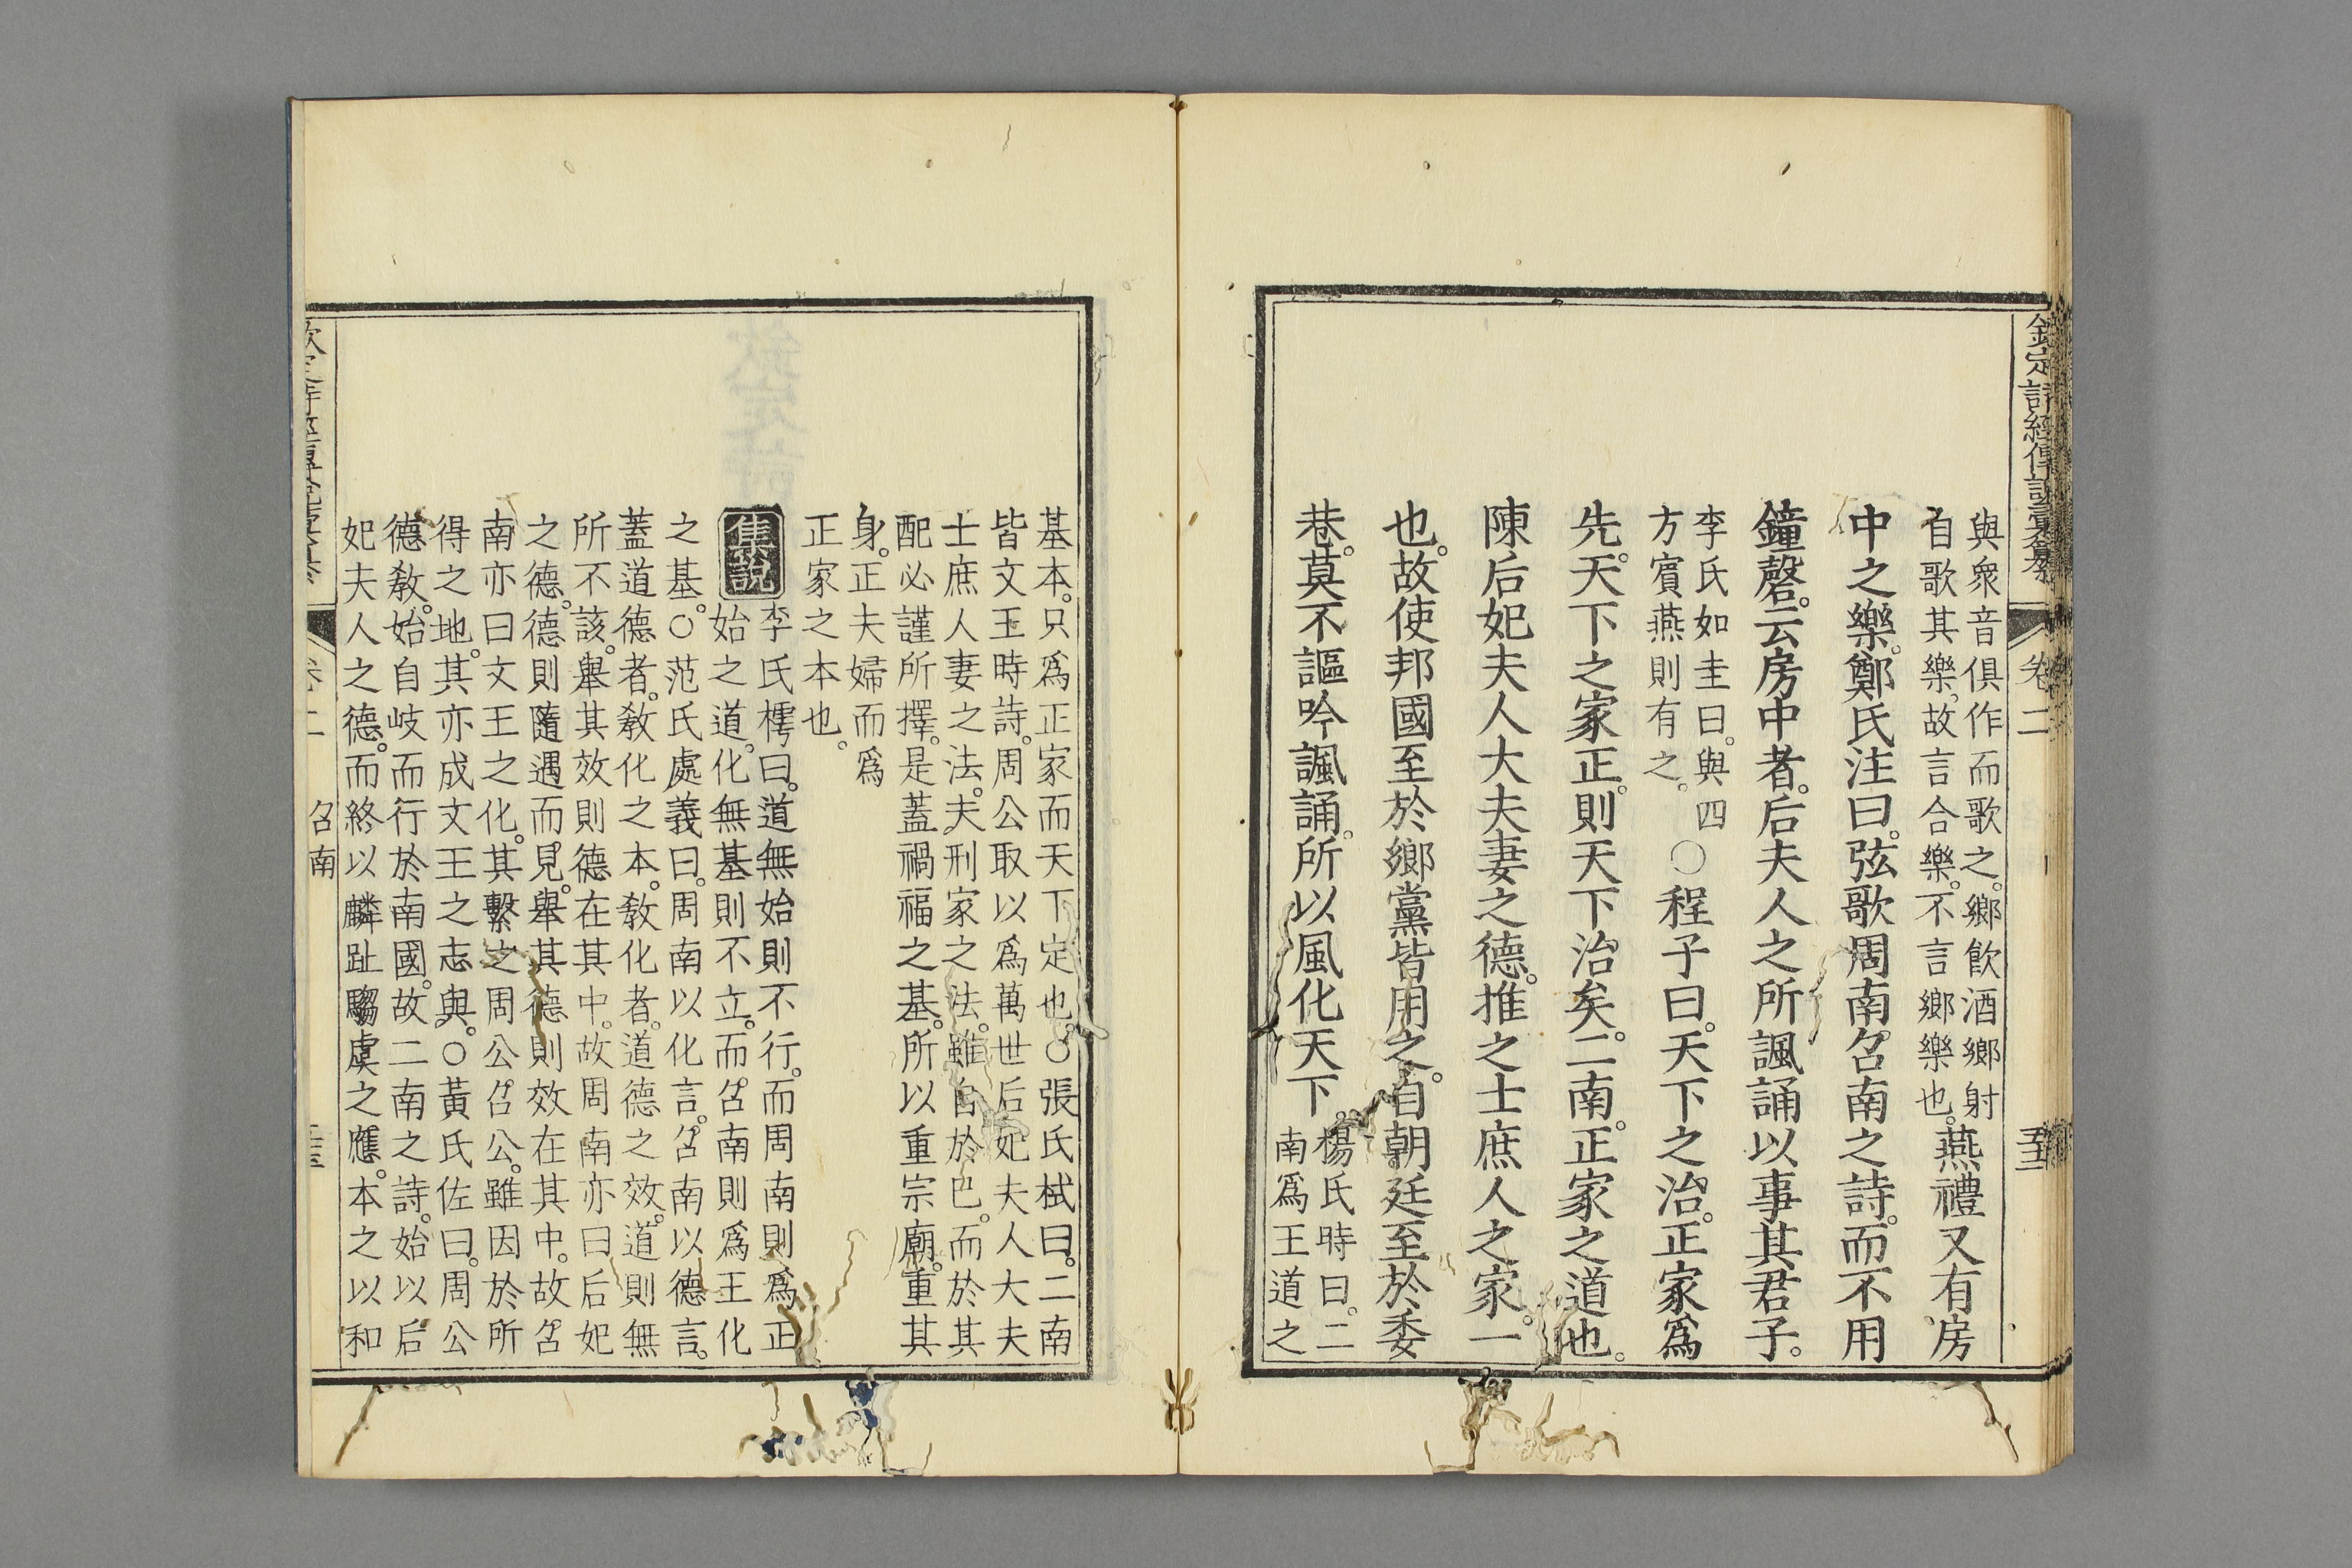 欽定詩經傳說彙纂 卷二
與衆音俱作而歌之。鄉飮酒鄉射
自歌其樂。故言合樂。不言鄉樂也。燕禮又有房
中之樂。鄭氏注曰。弦歌周南召南之詩。而不用
鐘磬。云房中者。后夫人之所諷誦以事其君子。
李氏如圭曰。與四
方賓燕則有之。○程子曰。天下之治。正家爲
先。天下之家正。則天下治矣。二南。正家之道也。
陳后妃夫人大夫妻之德。推之士庶人之家。一
也。故使邦國至於鄉黨皆用之。自朝廷至於委
巷。莫不謳吟諷誦。所以風化天下。楊氏時曰。二
南爲王道之
基本。只爲正家而天下定也。○張氏栻曰。二南
皆文王時詩。周公取以爲萬世后妃夫人大夫
士庶人妻之法。夫刑家之法。雖自於己。而於其
配必謹所擇。是蓋禍福之基。所以重宗廟。重其
身。正夫婦而爲
正家之本也。
集說 李氏樗曰。道無始則不行。而周南則爲正
始之道。化無基則不立。而召南則爲王化
之基。○范氏處義曰。周南以化言。召南以德言。
蓋道德者。敎化之本。敎化者。道德之效。道則無
所不該。舉其效則德在其中。故周南亦曰后妃
之德。德則隨遇而見。舉其德則效在其中。故召
南亦曰文王之化。其繫之周公召公。雖因於所
得之地。其亦成文王之志與。○黃氏佐曰。周公
德敎。始自岐而行於南國。故二南之詩。始以后
妃夫人之德。而終以麟趾騶虞之應。本之以和
卷二 召南